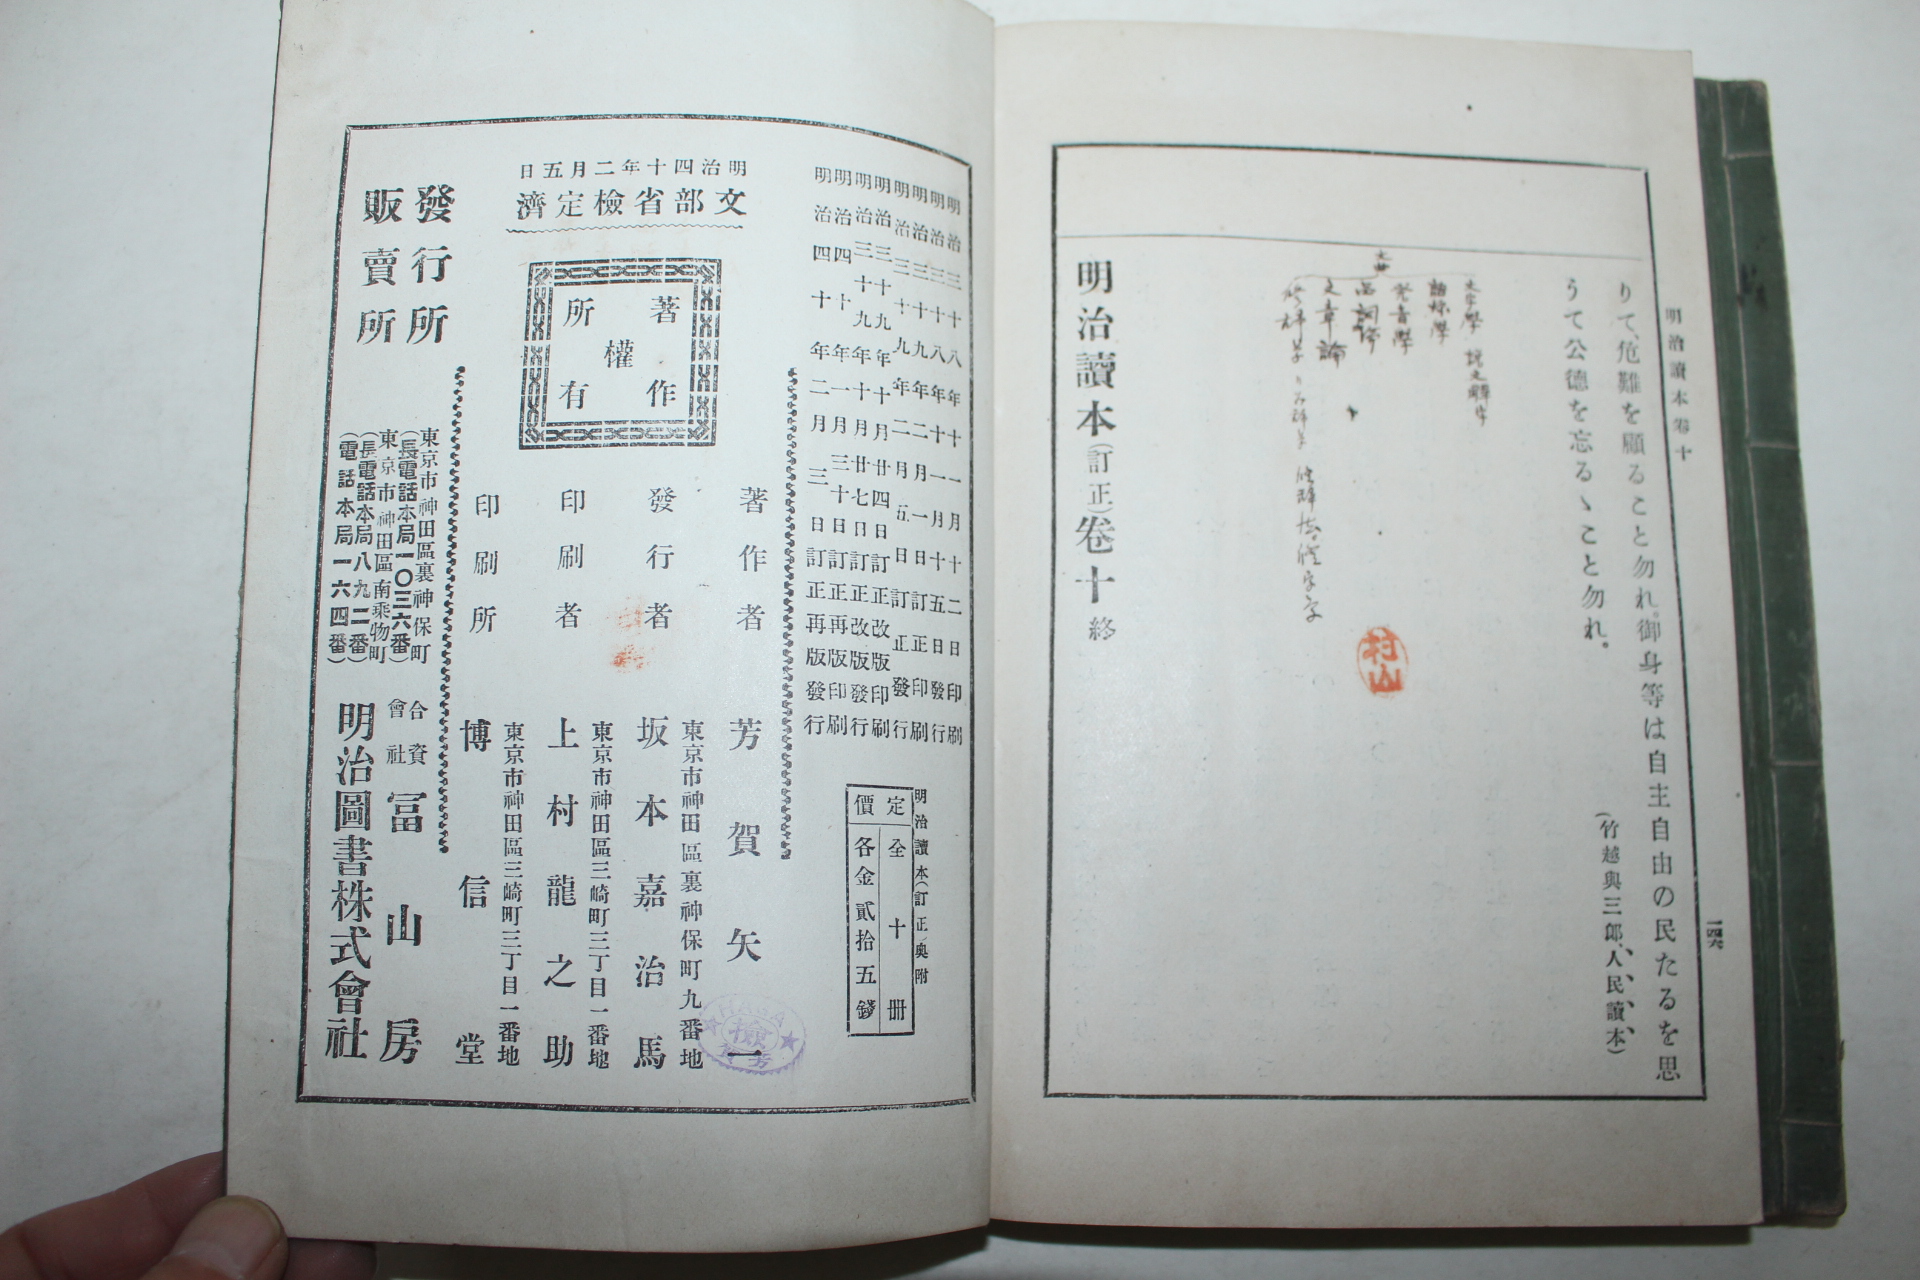 明治讀本卷十
一四六
りて、危難を顧ること勿れ。御身等は自主自由の民たるを思
うて公德を忘るゝこと勿れ。
(竹越與三郎、人民讀本)
文字學
發音學
品詞論
文章論
村山
明治讀本(訂正)卷十終
明治三十八年十一月十二日印刷
明治三十八年十一月十五日發行
明治三十九年二月一日訂正印刷
明治三十九年二月五日訂正發行
明治三十九年十月廿四日訂正改版印刷
明治三十九年十月廿七日訂正改版發行
明治四十年一月三十日訂正再版印刷
明治四十年二月三日訂正再版發行
明治讀本(訂正)奧附
定價
全十册
各金貳拾五錢
明治四十年二月五日
文部省檢定濟
著作
權
所有
著作者 芳賀矢一
東京市神田區裏神保町九番地
發行者 坂本嘉治馬
東京市神田區三崎町三丁目一番地
印刷者 上村龍之助
東京市神田區三崎町三丁目一番地
印刷所 博信堂
發行所
東京市神田區裏神保町
(長電話本局一〇三六番)
合資會社 冨山房
販賣所
東京市神田區南乘物町
(長電話本局八九二番)
(電話本局一六四番)
明治圖書株式會社